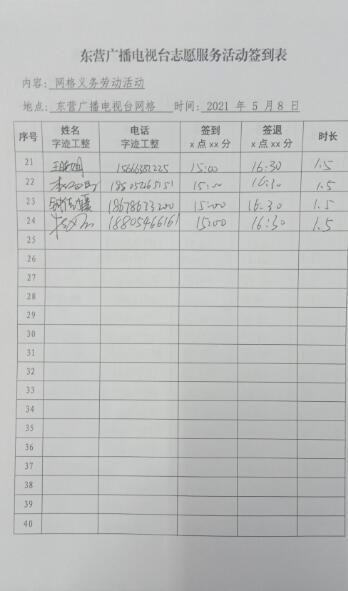 东营广播电视台志愿服务活动签到表
内容：网格义务劳动活动
地点：东营广播电视台网格 时间：2021 年 5 月 8 日
序号 姓名 字迹工整 电话 字迹工整 签到 x 点 xx 分 签退 x 点 xx 分 时长
21 15:00 16:30 1.5
22 15:00 16:30 1.5
23 18678633200 15:00 16:30 1.5
24 18805466161 15:00 16:30 1.5
25
26
27
28
29
30
31
32
33
34
35
36
37
38
39
40